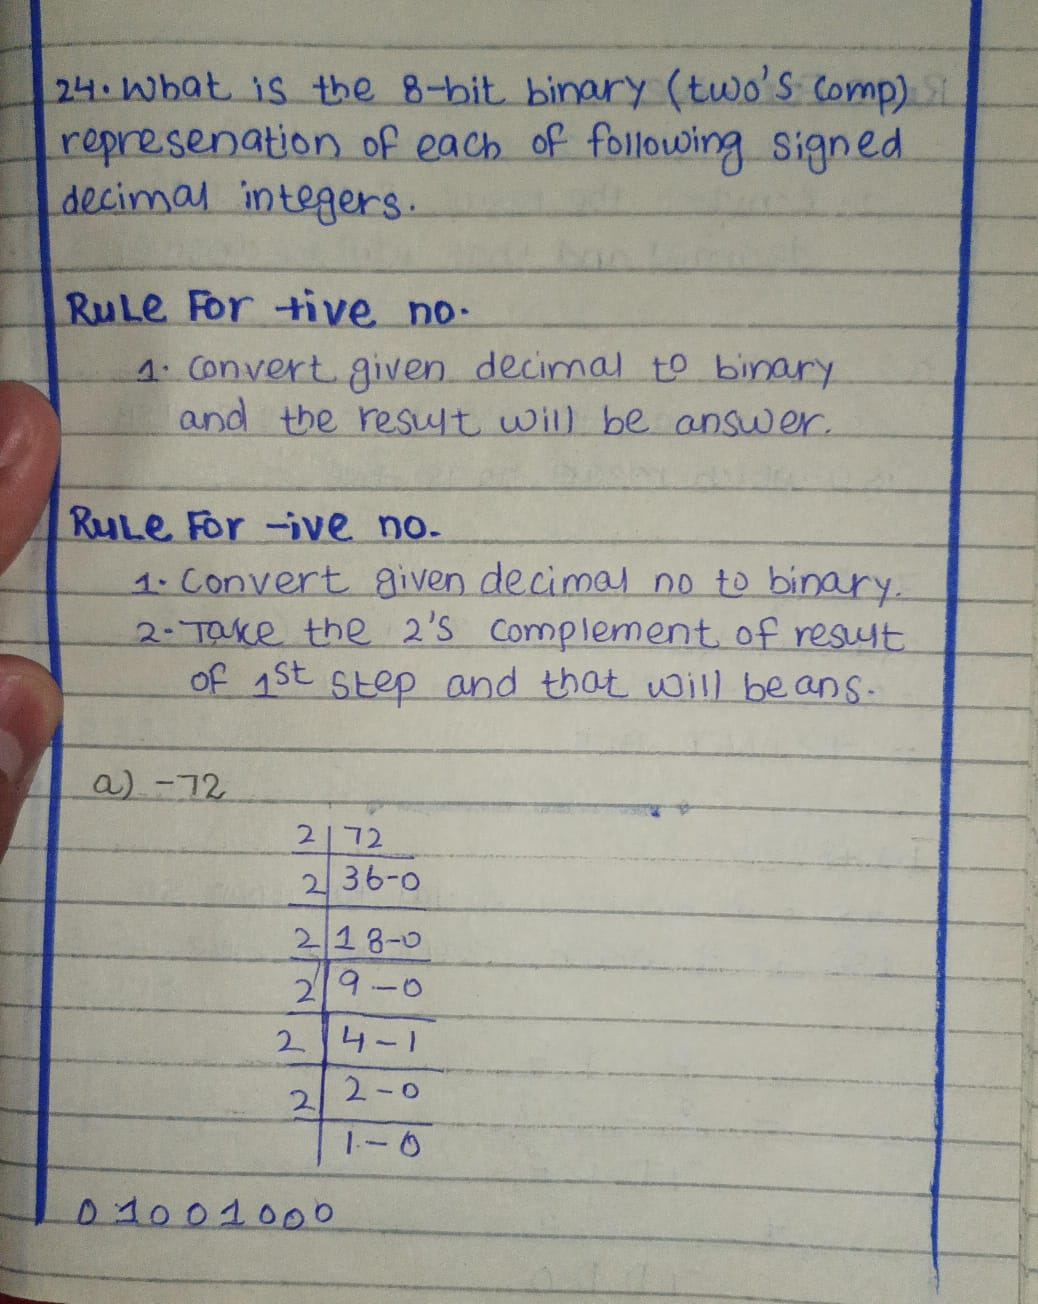 24. What is the 8-bit binary (two's comp)
represenation of each of following signed
decimal integers.
Rule For +ive no.
1. Convert given decimal to binary
and the result will be answer.
Rule For -ive no.
1. Convert given decimal no to binary.
2- Take the 2's complement of result
of 1st step and that will be ans.
a) -72
2 | 72
2 | 36-0
2 | 18-0
2 | 9-0
2 | 4-1
2 | 2-0
| 1-0
01001000